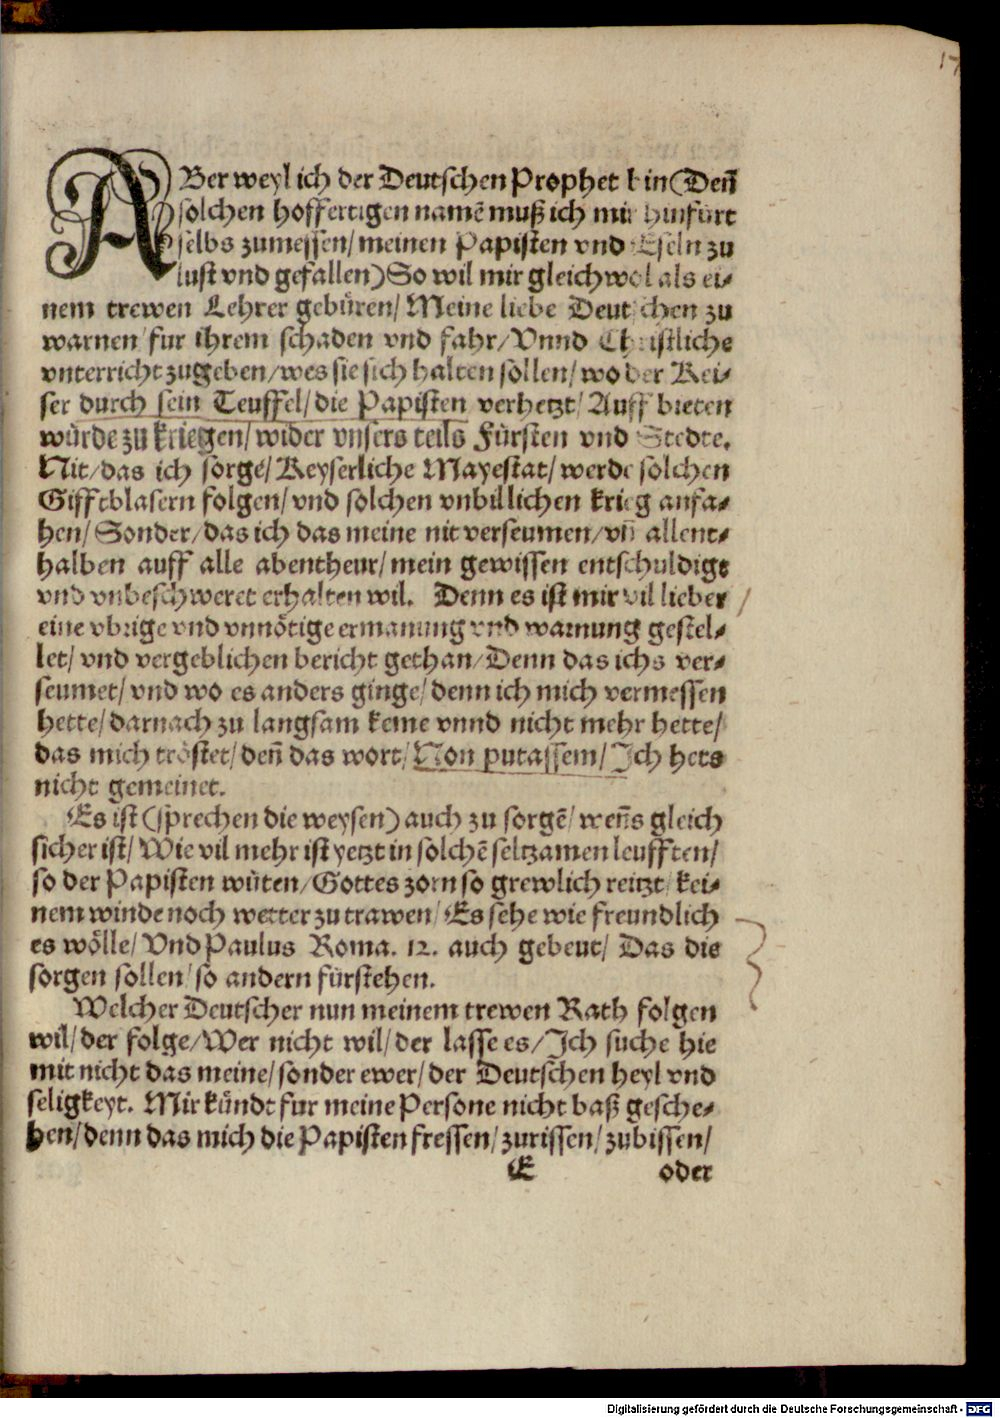 17
ABer weyl ich der Deutschen Prophet bin (Deñ
solchen hoffertigen namẽ muß ich mir hinfürt
selbs zumessen/ meinen Papisten vnd Eseln zu
lust vnd gefallen) So wil mir gleichwol als ei⸗
nem trewen Lehrer gebüren/ Meine liebe Deutschen zu
warnen fur ihrem schaden vnd fahr/ Vnnd Christliche
vnterricht zugeben/ wes sie sich halten sollen/ wo der Kei⸗
ser durch sein Teuffel/ die Papisten verhetzt/ Auff bieten
würde zu kriegen/ wider vnsers teils Fürsten vnd Stedte.
Nit/ das ich sorge/ Keyserliche Mayestat/ werde solchen
Gifftblasern folgen/ vnd solchen vnbillichen krieg anfa⸗
hen/ Sonder/ das ich das meine nit verseumen/ vñ allent⸗
halben auff alle abentheur/ mein gewissen entschuldigt
vnd vnbeschweret erhalten wil. Denn es ist mir vil lieber
eine vbrige vnd vnnötige ermanung vnd warnung gestel⸗
let/ vnd vergeblichen bericht gethan/ Denn das ichs ver⸗
seumet/ vnd wo es anders ginge/ denn ich mich vermessen
hette/ darnach zu langsam keme vnnd nicht mehr hette/
das mich tröstet/ deñ das wort/ Non putassem/ Ich hets
nicht gemeinet.
Es ist (sprechen die weysen) auch zu sorgẽ/ weñs gleich
sicher ist/ Wie vil mehr ist yetzt in solchẽ seltzamen leufften/
so der Papisten wüten/ Gottes zorn so grewlich reitzt/ kei⸗
nem winde noch wetter zu trawen/ Es sehe wie freundlich
es wölle/ Vnd Paulus Roma. 12. auch gebeut/ Das die
sorgen sollen/ so andern fürstehen.
Welcher Deutscher nun meinem trewen Rath folgen
wil/ der folge/ Wer nicht wil/ der lasse es/ Ich suche hie
mit nicht das meine/ sonder ewer/ der Deutschen heyl vnd
seligkeyt. Mir kündt fur meine Persone nicht baß gesche⸗
hen/ denn das mich die Papisten fressen/ zurissen/ zubissen/
E oder
Digitalisierung gefördert durch die Deutsche Forschungsgemeinschaft - DFG